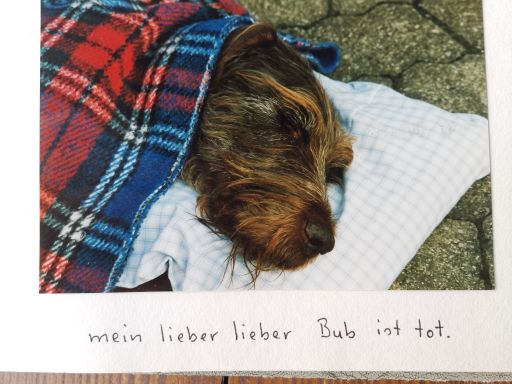 mein lieber lieber Bub ist tot.